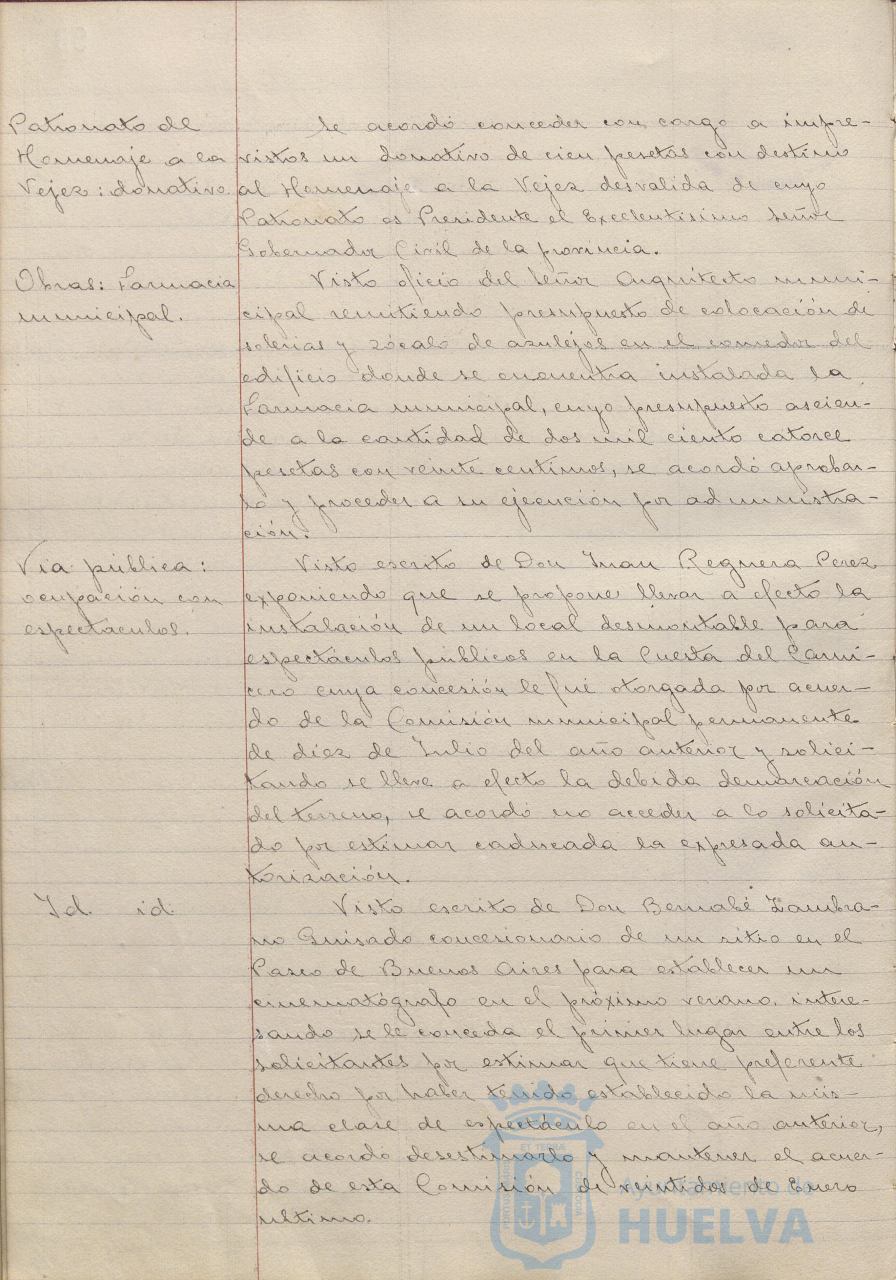 Patronato de
Homenaje a la
Vejez: donativo.
Se acordó conceder con cargo a impre-
vistos un donativo de cien pesetas con destino
al Homenaje a la Vejez desvalida de cuyo
Patronato es Presidente el Excelentisimo Señor
Gobernador Civil de la provincia.
Obras: Farmacia
municipal.
Visto oficio del Señor Arquitecto muni-
cipal remitiendo presupuesto de colocación de
solerias y zócalo de azulejos en el comedor del
edificio donde se encuentra instalada la
Farmacia municipal, cuyo presupuesto ascien-
de a la cantidad de dos mil ciento catorce
pesetas con veinte centimos, se acordó aprobar-
lo y proceder a su ejecución por administra-
ción.
Via pública:
ocupación con
espectaculos.
Visto escrito de Don Juan Reguera Perez
exponiendo que se propone llevar a efecto la
instalación de un local desmontable para
espectáculos públicos en la Cuesta del Carni-
cero cuya concesión le fué otorgada por acuer-
do de la Comisión municipal permanente
de diez de Julio del año anterior y solici-
tando se lleve a efecto la debida demarcación
del terreno, se acordó no acceder a lo solicita-
do por estimar caducada la expresada au-
torización.
Id. id.
Visto escrito de Don Bernabé Zambra-
no Guisado concesionario de un sitio en el
Paseo de Buenos Aires para establecer un
cinematógrafo en el próximo verano, intere-
sando se le conceda el primer lugar entre los
solicitantes por estimar que tiene preferente
derecho por haber tenido establecido la mis-
ma clase de espectáculo en el año anterior,
se acordó desestimarlo y mantener el acuer-
do de esta Comisión de veintidos de Enero
ultimo.
Ayuntamiento de
HUELVA